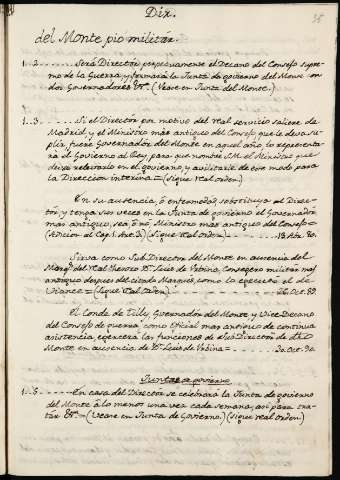 Dir.
35
del Monte pio militár.
1..2...... Será Director perpetuamente el Decano del Consejo supre-
mo de la Guerra, y formará la Junta de govierno del Monte con
dos Governadores &ª. (Vease en Junta del Monte.)
1..3...... Si el Director por motivo del real servicio saliere de
Madrid, y el Ministro mas antiguo del Consejo que le deva su-
plir, fuere Governadór del Monte en aquel año, lo representa-
rá el Govierno al Rey, para que nombre S.M. el Ministro que
deva relevarlo en el govierno, y avilitarle de este modo para
la Direccion interina = (Sigue real orden)
En su ausencia, ó enfermedad, sobstituya al Direc-
tór, y tenga sus veces en la Junta de govierno el Governadór
mas antiguo, sea, ó no, Ministro mas antiguo del Consejo =
(Adicion al Cap. 1. Art. 3.) (Sigue real orden) ------- 13. Abr. 80.
Sirva como Sub-Director del Monte en ausencia del
Marqs. del real Thesoro Dn. Luis de Urbina, Consegero militar mas
antiguo despues del citado Marques, como lo egecutó el de
= (Sigue real orden) ------- 26. Oct. 89.
El Conde de Tilly, Governadór del Monte, y Vice-Decano
del Consejo de guerra, como Oficial mas antiguo de continua
asistencia, egercerá las funciones de Sub-Director de dho
Monte en ausencia de Dn. Luis de Urbina = ------- 30. Oct. 90.
Juntas de govierno
1..5...... En casa del Director se celebrará la Junta de govierno
del Monte á lo menos una vez cada semana, asi para tra-
tár &ª = (Vease en Junta de Govierno.) (Sigue real orden)